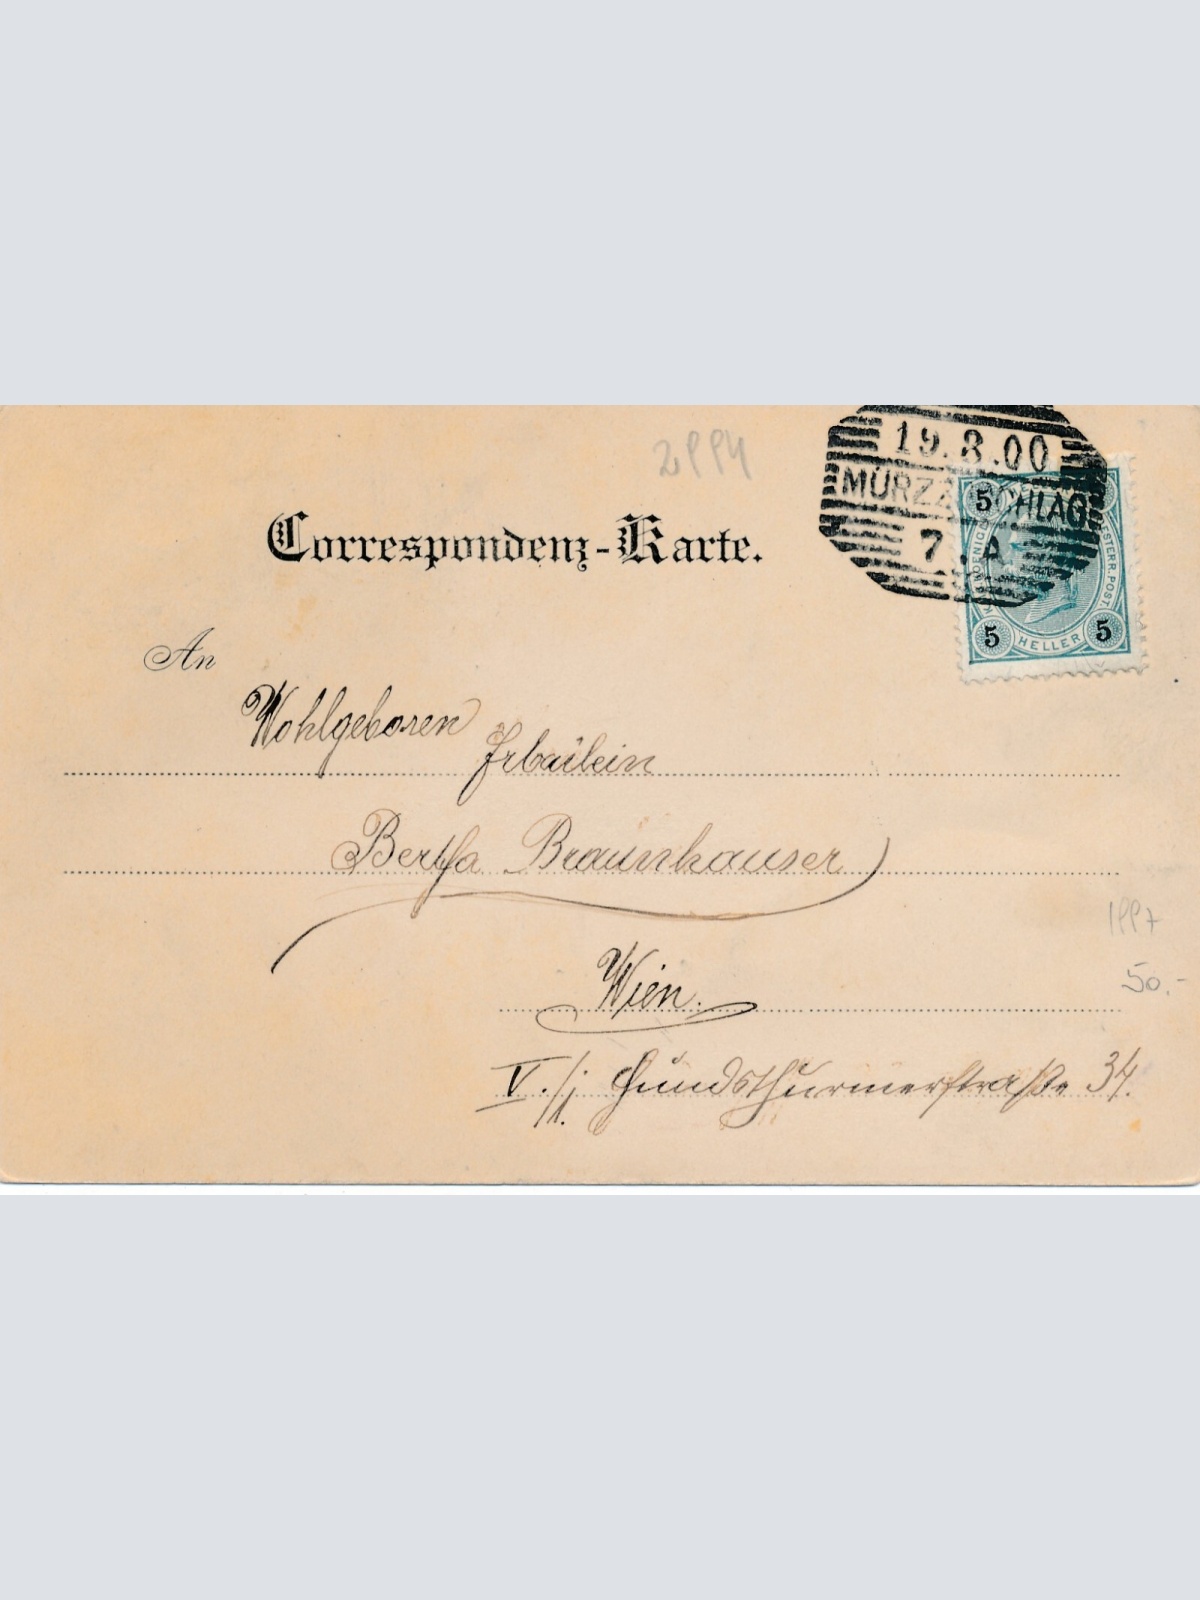 2994
19.8.00
MÜRZZUSCHLAG
7.A
Correspondenz-Karte.
5
HELLER
5 5
An
Wohlgeboren
Fräulein
Bertha Braunhauser
1997
Wien.
50.-
V./1. Hundsthurmerstraße 34.